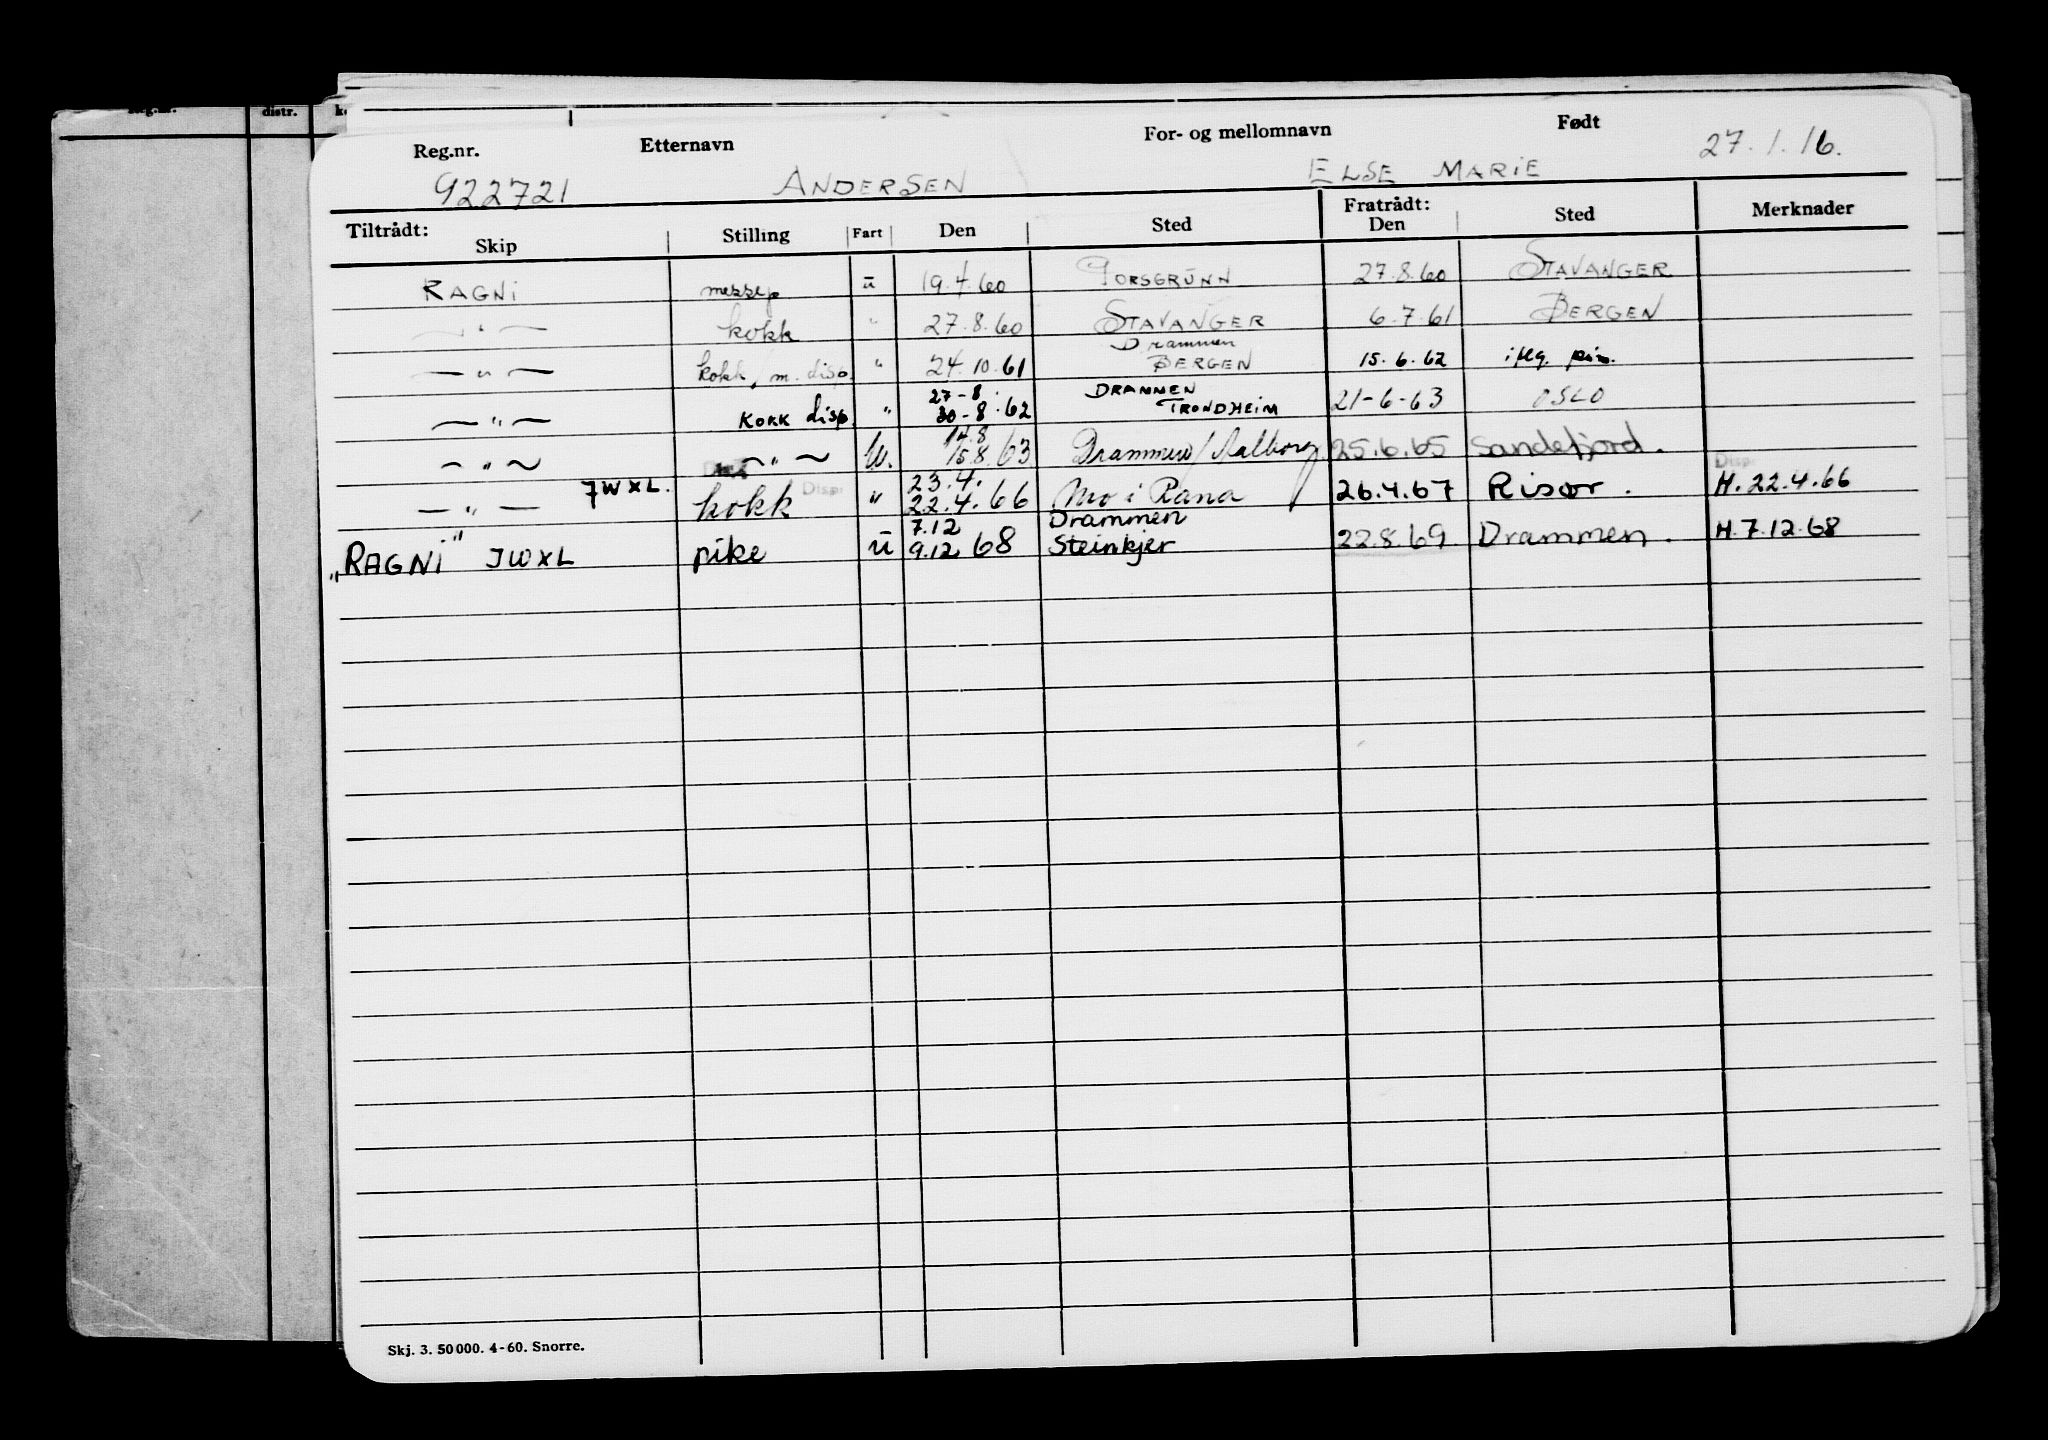 distr.
Reg.nr. Etternavn For- og mellomnavn Født
922721 ANDERSEN ELSE MARIE 27.1.16.
Tiltrådt: Skip Stilling Fart Den Sted Fratrådt: Den Sted Merknader
RAGNi ü 19.4.60 PORSGRUNN 27.8.60 STAVANGER
— " — kokk " 27.8.60 STAVANGER 6.7.61 BERGEN
Drammen
— " — kokk/m. disp. " 24.10.61 BERGEN 15.6.62 iflg.
27-8 DRAMMEN
— " — KOKK disp. " 30-8.62 TRONDHEIM 21-6-63 OSLO
14.8
— " — — " — U. 15.8.63 Drammen/Aalborg. 25.6.65 Sandefjord.
23.4. Disp.
— " — JWXL. kokk Disp. " 22.4.66 Mo i Rana 26.4.67 Risør. H. 22.4.66
7.12 Drammen
"RAGNi" JWXL pike ü 9.12 68 Steinkjer 22.8.69. Drammen. H. 7.12.68
Skj. 3. 50 000. 4-60. Snorre.